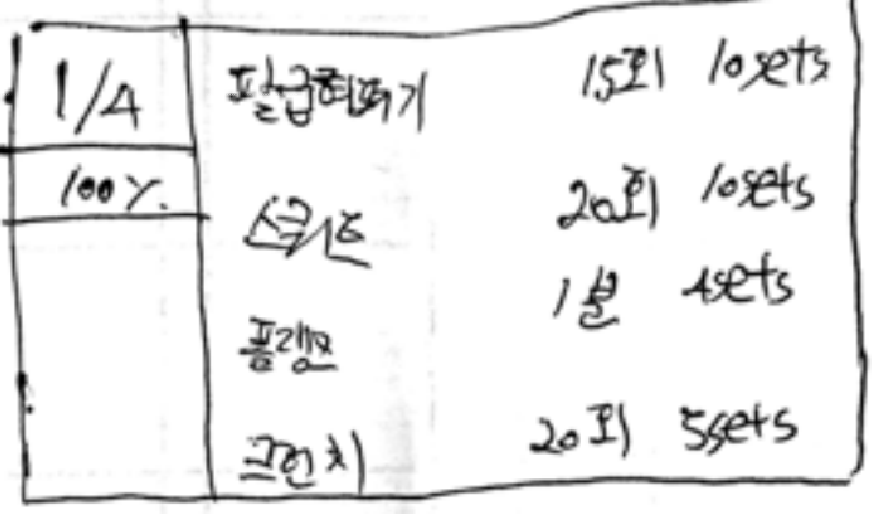 1/4 팔굽혀펴기 15회 10sets
100%. 스쿼트 20회 10sets
플랭크 1분 4sets
크런치 20회 5sets